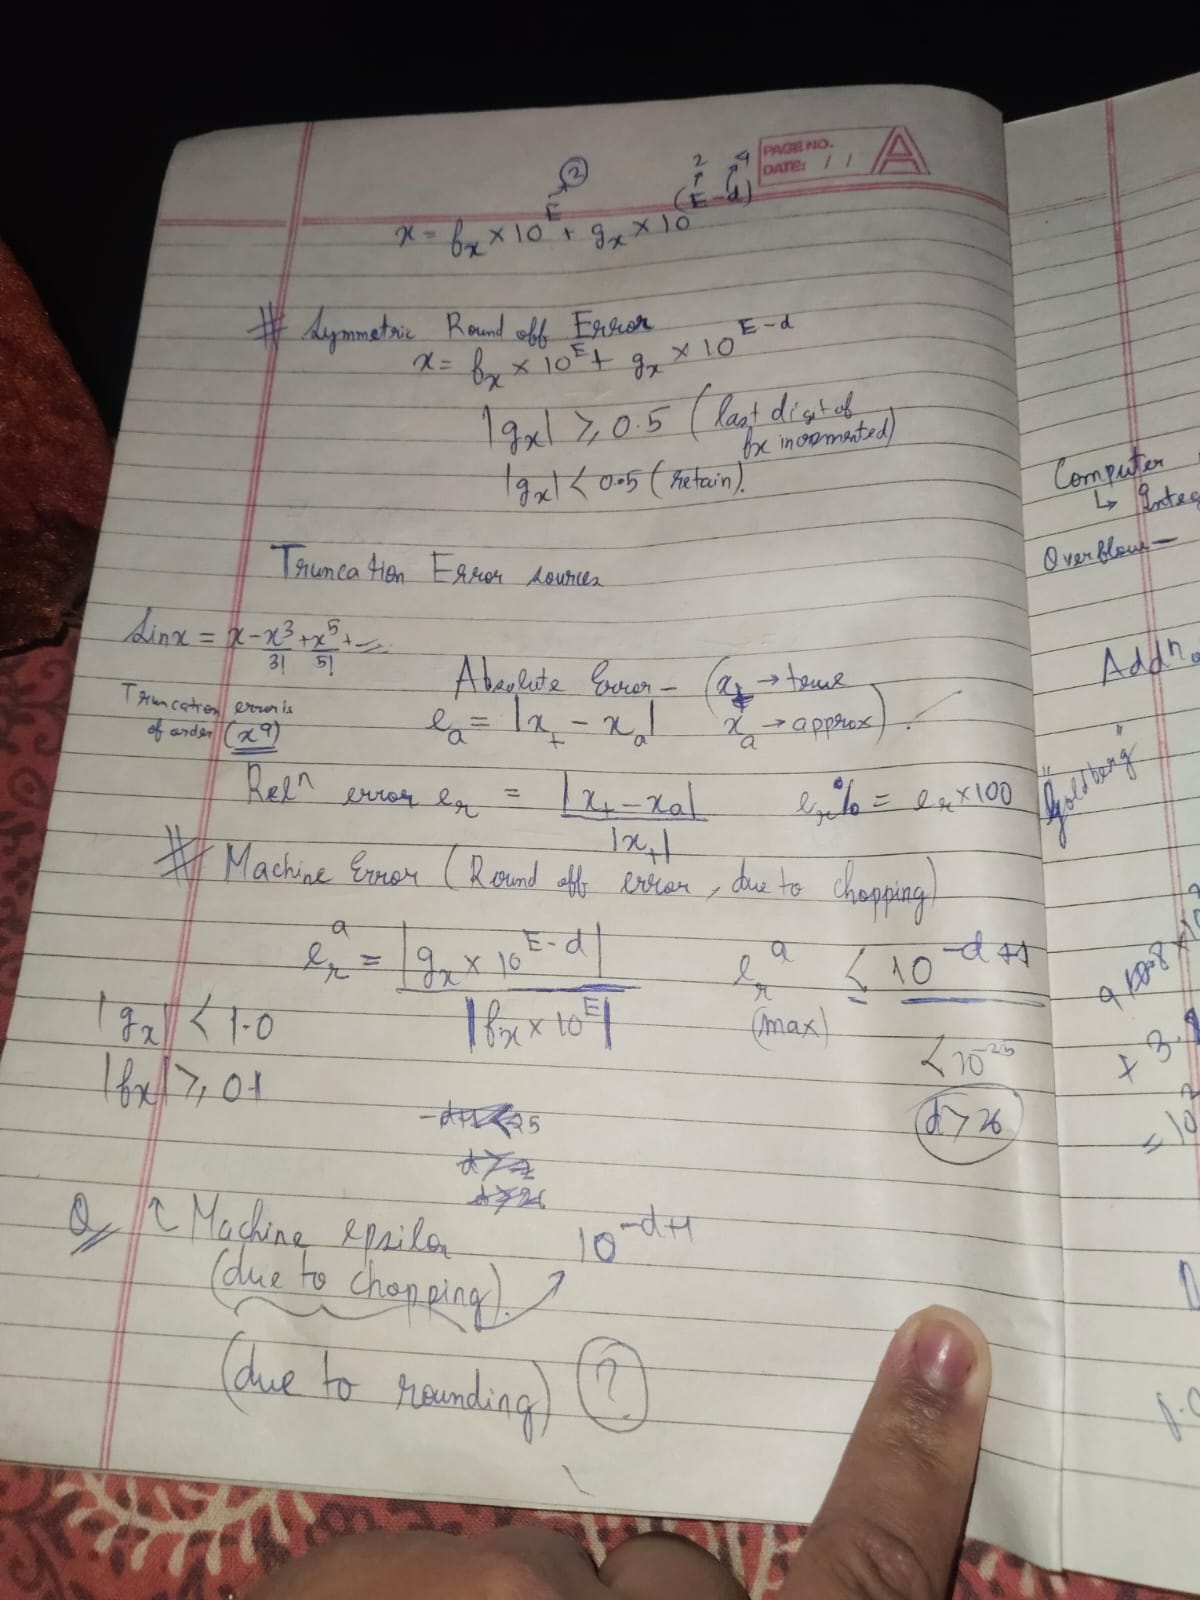 PAGE NO.
DATE: / /
A
2 4
②
x = fx × 10^E + gx × 10^(E-d)
# Symmetric Round off Error
x = fx × 10^E + gx × 10^E-d
|gx| ≥ 0.5 (last digit of
fx incremented)
|gx| < 0.5 (retain).
Truncation Error sources
Sinx = x - x³/3! + x⁵/5! +
Truncation error is
of order (x⁹)
Absolute Error - (x_t → true
e_a = |x_t - x_a| x_a → approx).
Relⁿ error e_r = |x_t - x_a| / |x_t| e_r% = e_r × 100
# Machine Error (Round off error, due to chopping)
e_r^a = |gx × 10^E-d| / |fx × 10^E| e_r^a (max) ≤ 10^-d+1
|gx| < 1.0
|fx| ≥ 0.1
< 10^-25
d > 26
Q ↑ Machine epsilon 10^-d+1
(due to chopping).
(due to rounding) ?
Computer
↳
Overflow -
Addⁿ
"Goldberg"